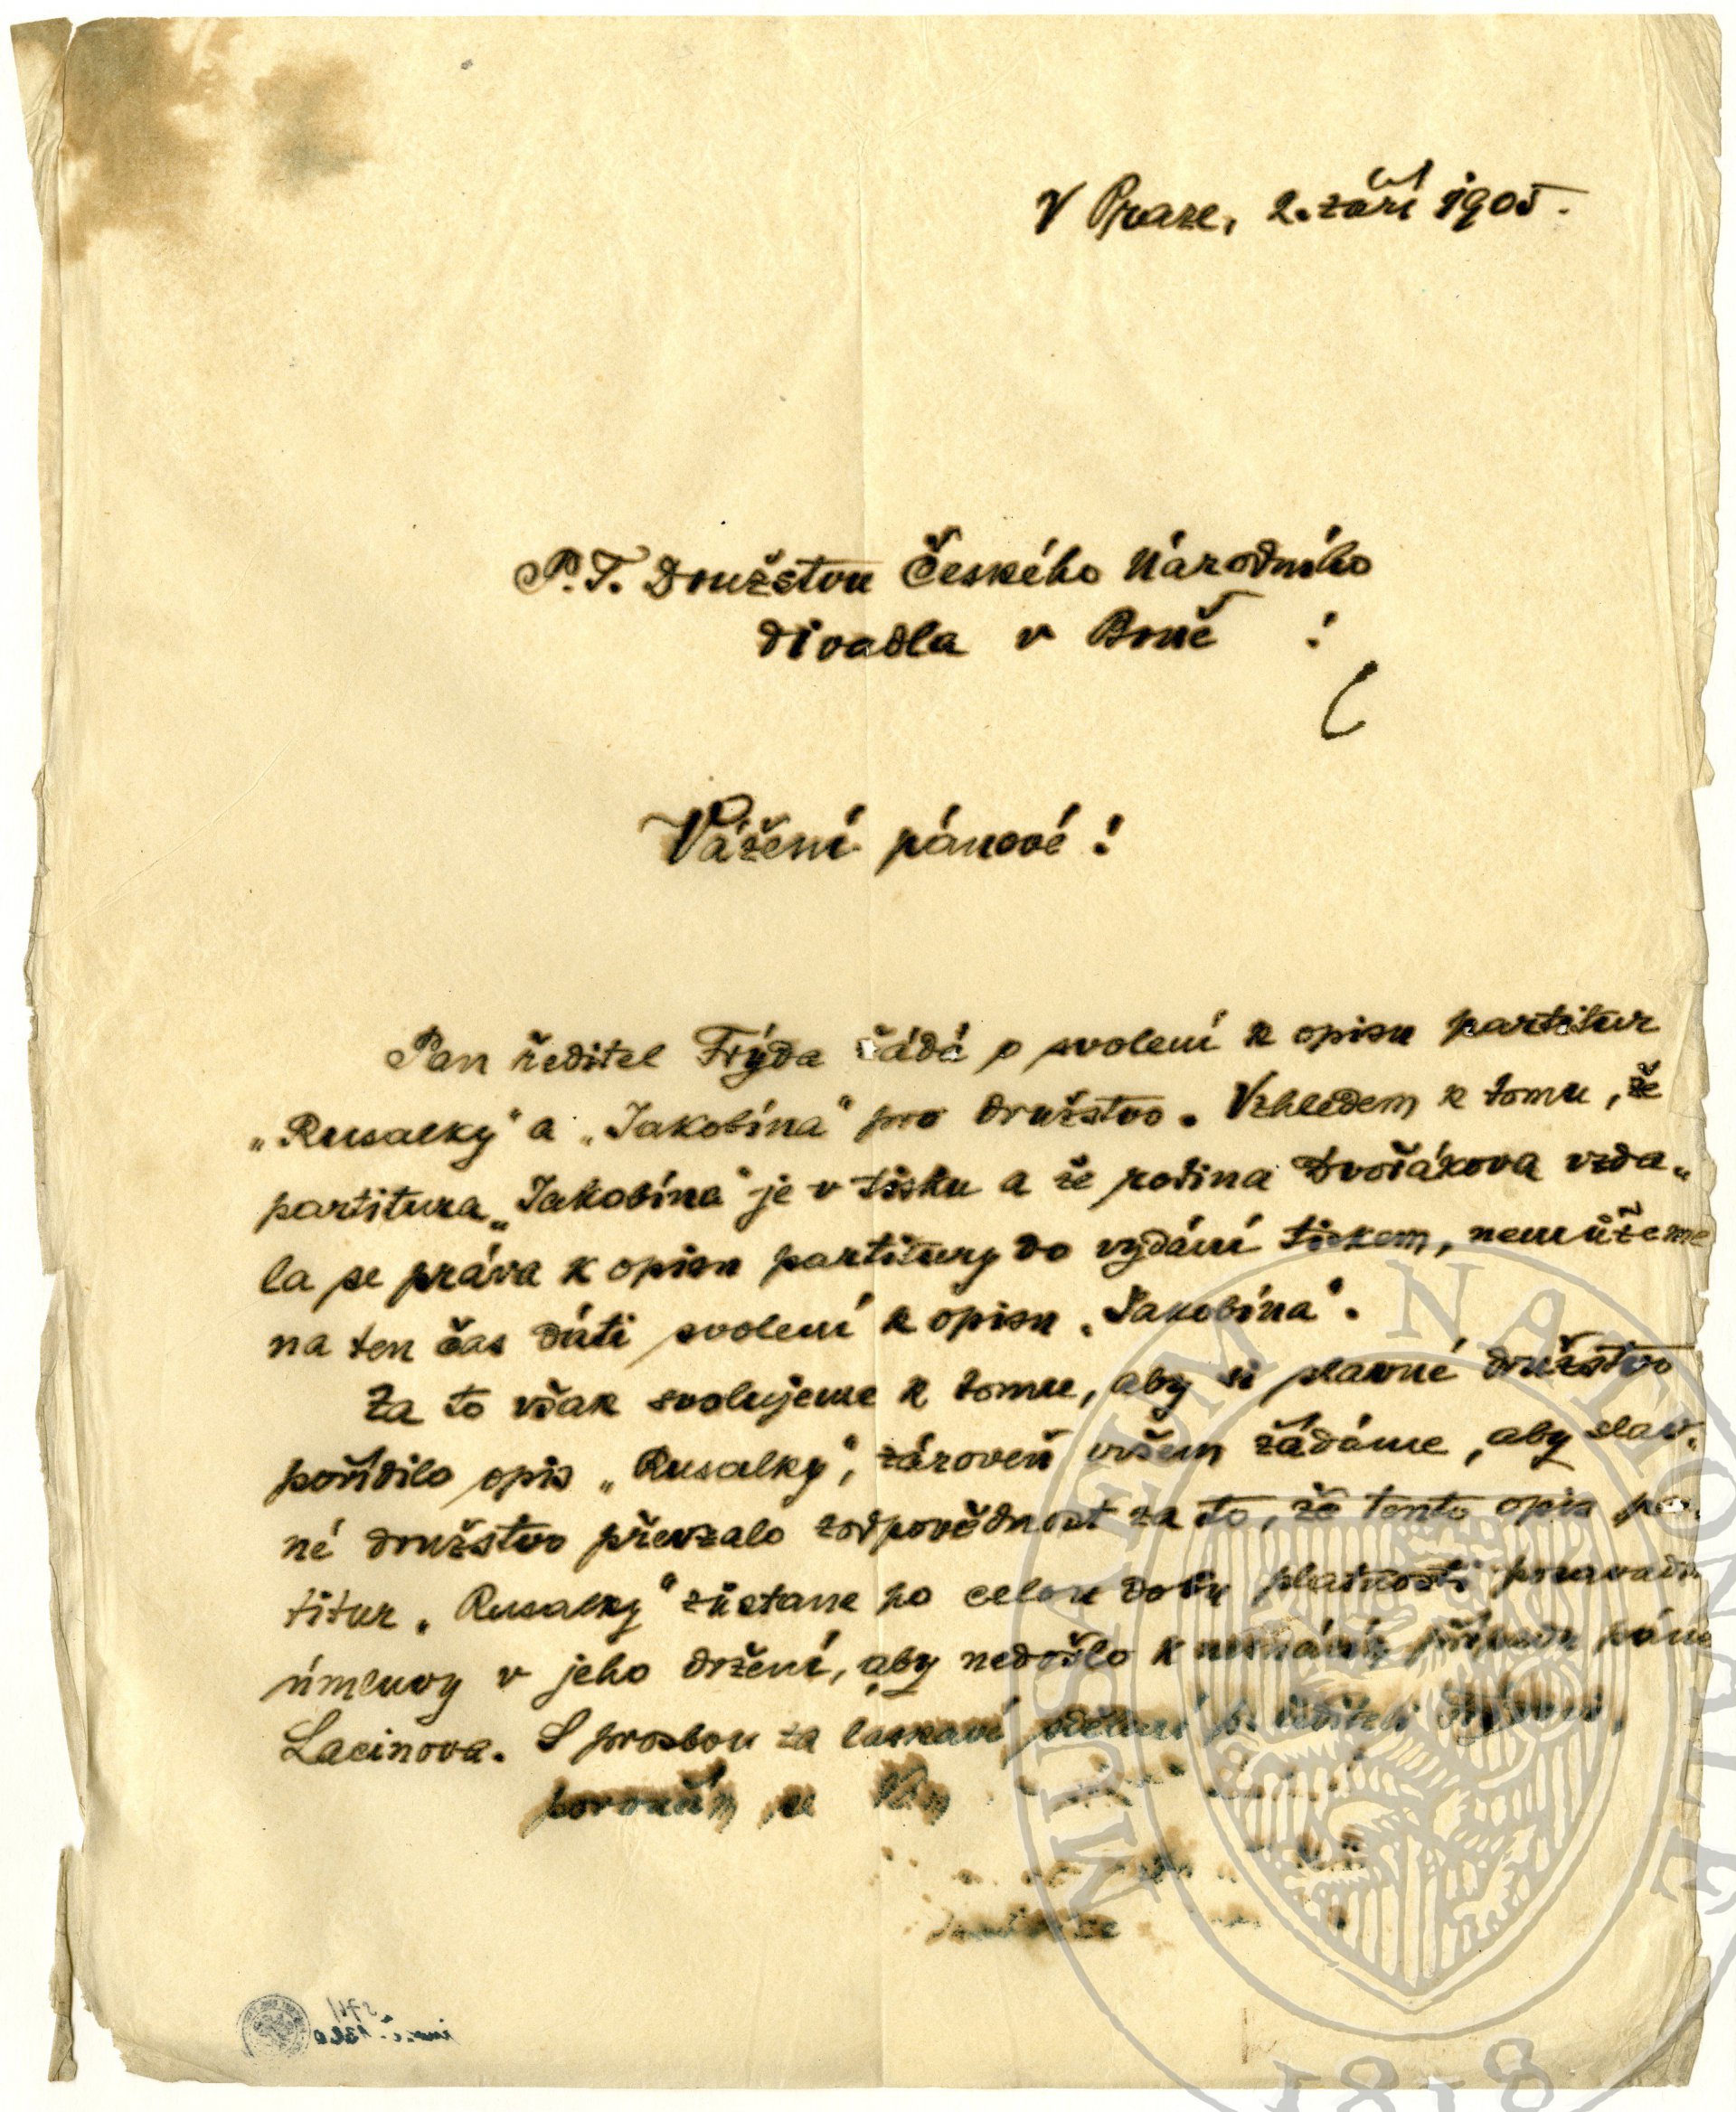 V Praze, 2. září 1905.
P. T. Družstvu Českého Národního
divadla v Brně !
Vážení pánové !
Pan ředitel Frýda žádá o svolení k opisu partitur
„Rusalky" a „Jakobína" pro družstvo. Vzhledem k tomu, že
partitura „Jakobína" je v tisku a že rodina Dvořákova vzda-
la se práva k opisu partitury do vydání tiskem, nemůžeme
na ten čas dáti svolení k opisu „Jakobína".
Za to však svolujeme k tomu, aby si slavné družstvo
pořídilo opis „Rusalky", zároveň ovšem žádáme, aby slav-
né družstvo převzalo zodpovědnost za to, že tento opis par-
titur „Rusalky" zůstane po celou dobu platnosti
úmluvy v jeho držení, aby nedošlo k případu pána
Lacinova. S prosbou za laskavé sdělení p. řediteli
poroučím se Vám
MUSEUM NATIONALE
1818